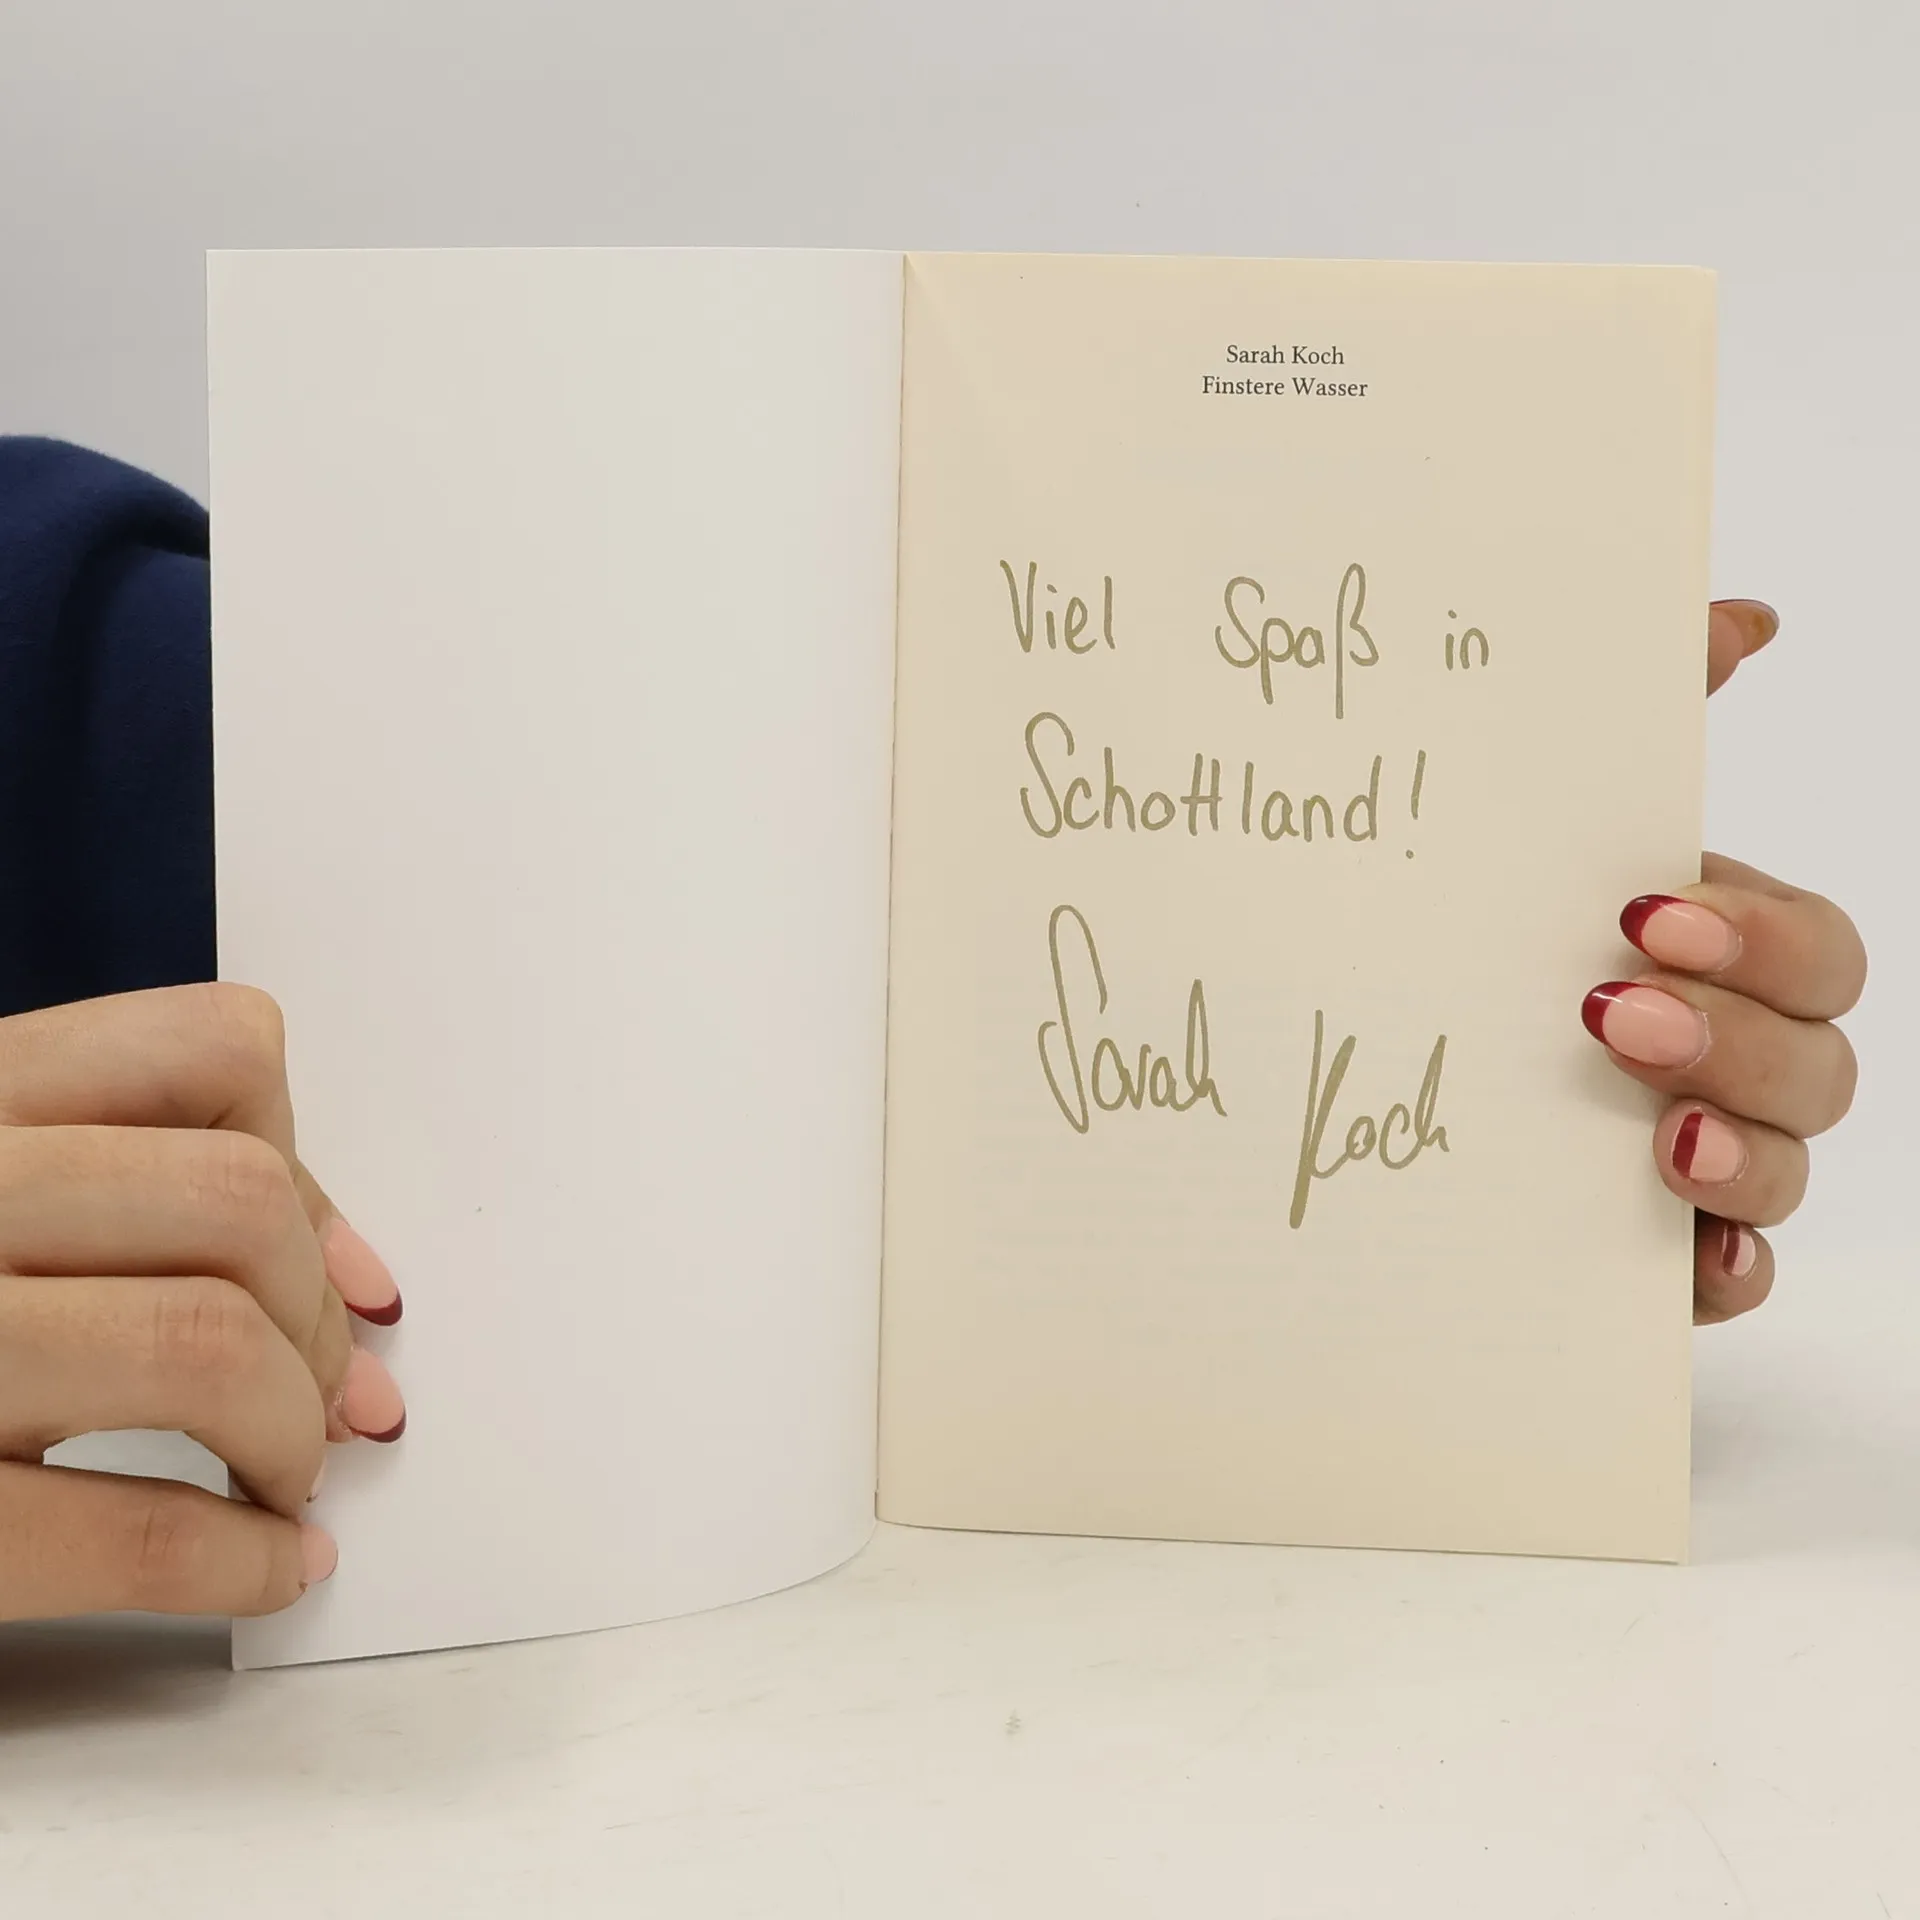 Sarah Koch
Finstere Wasser
Viel Spaß in
Schottland!
Sarah Koch